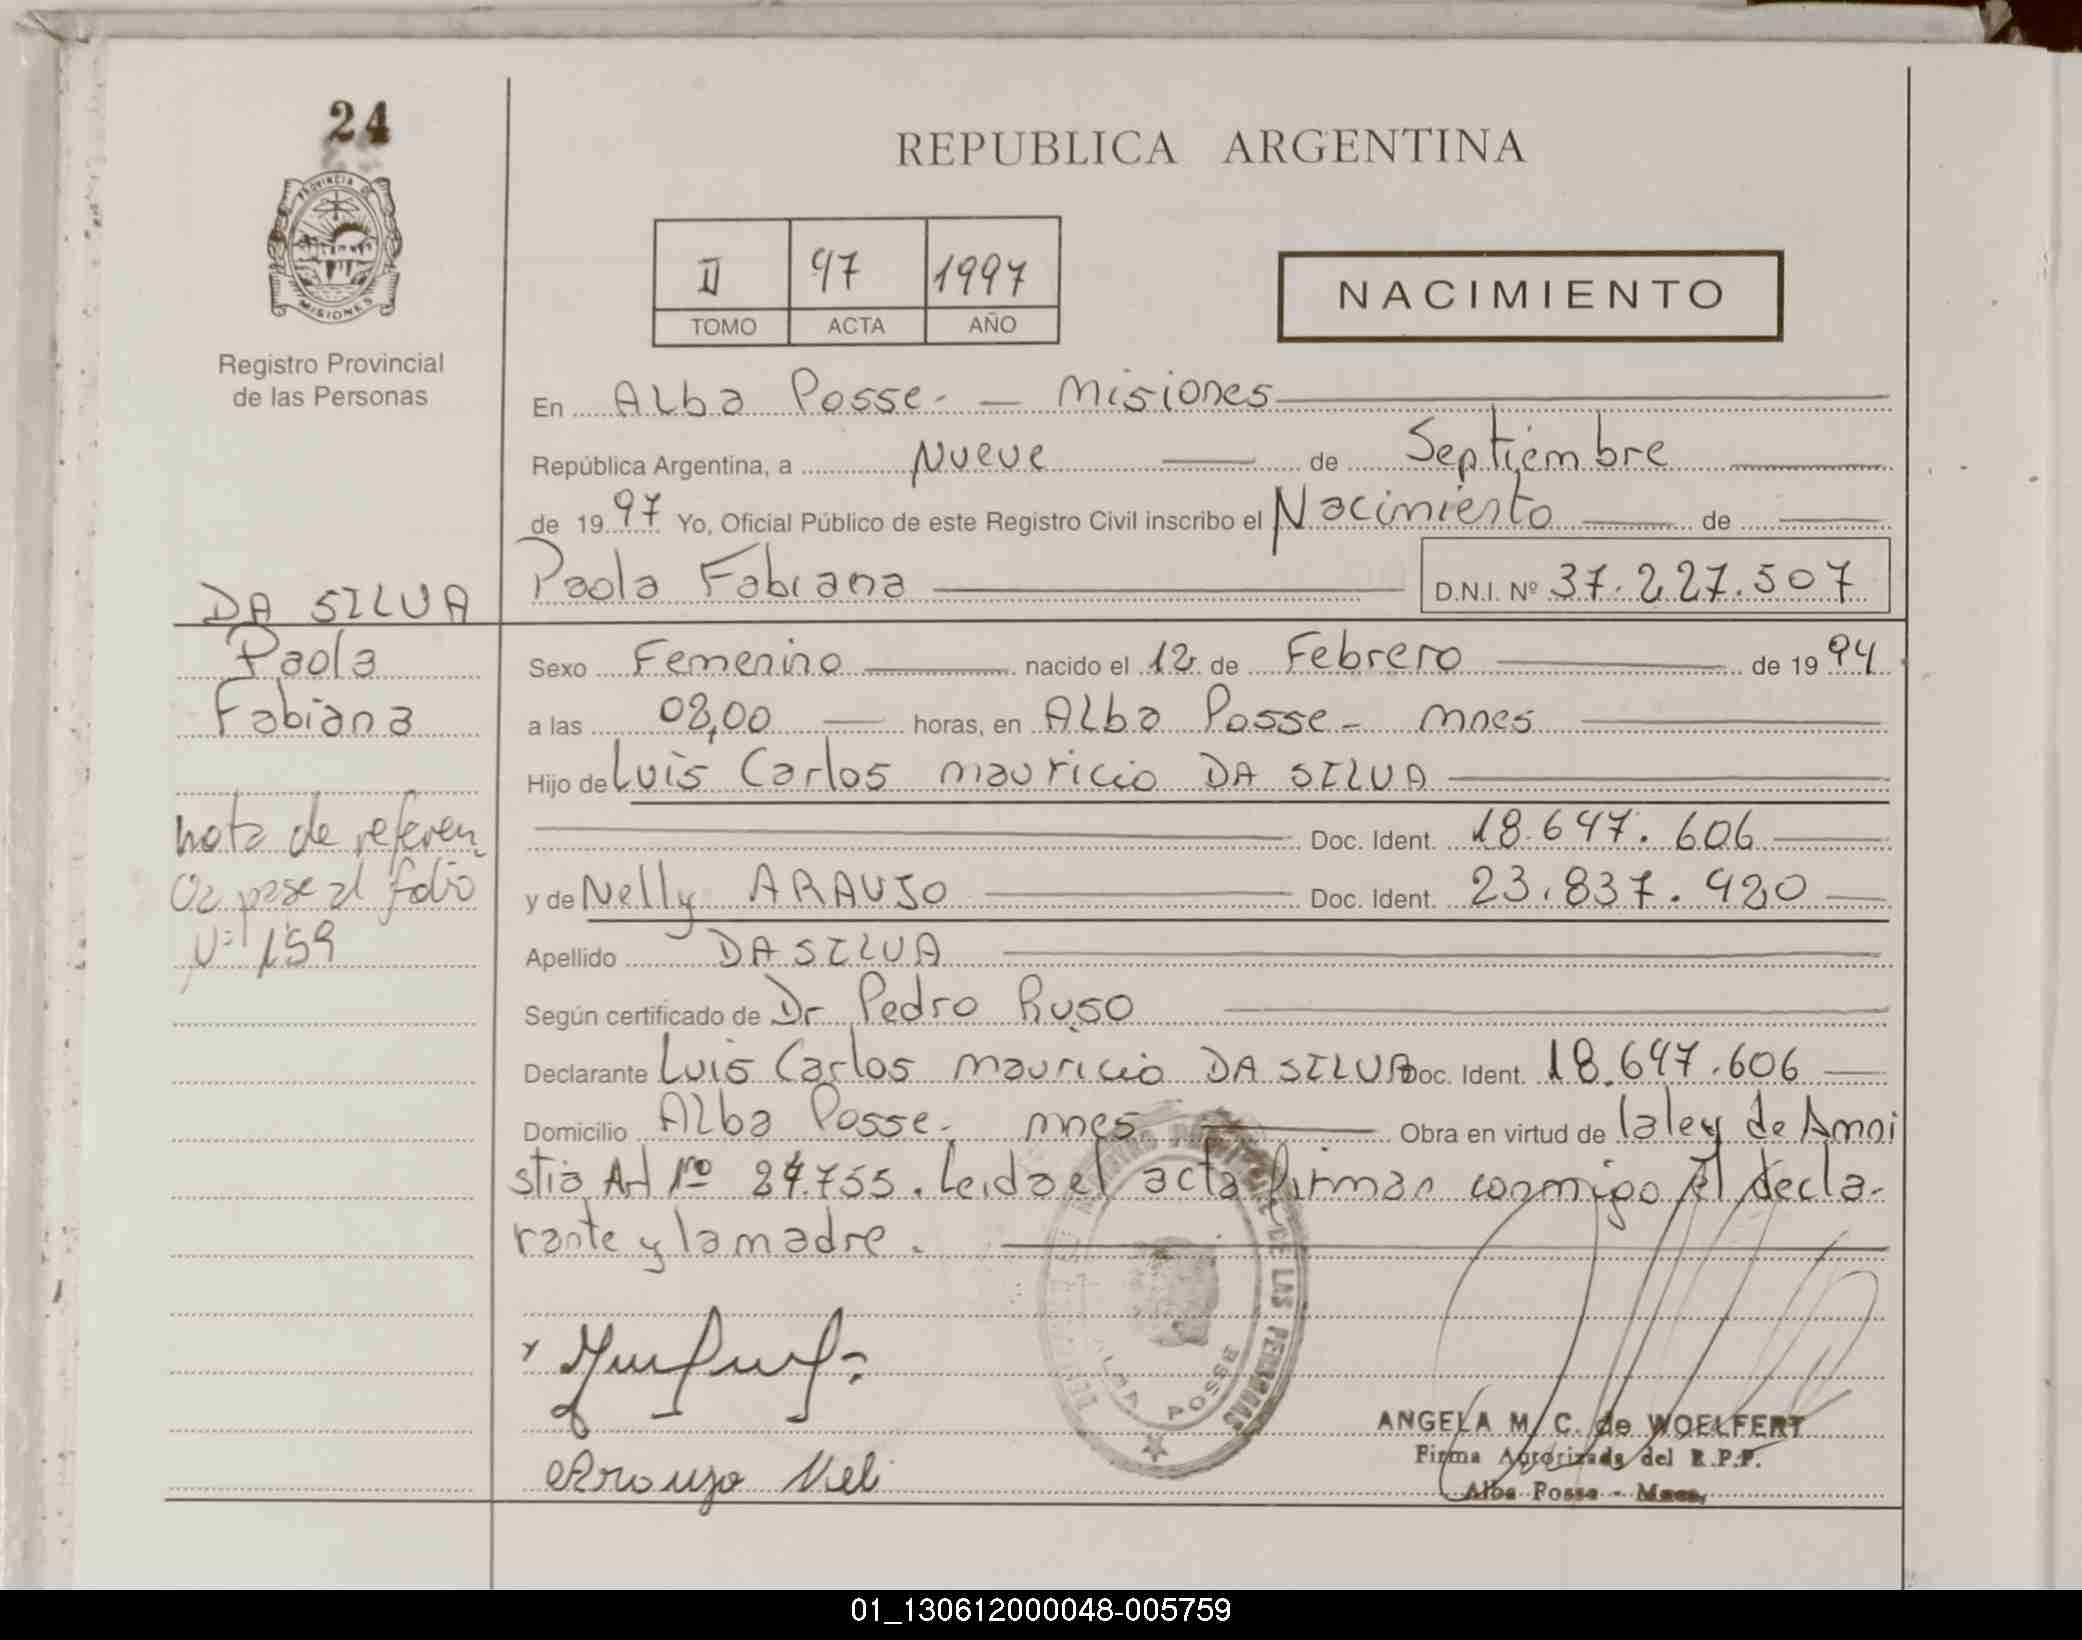 24
PROVINCIA DE
MISIONES
Registro Provincial
de las Personas
REPUBLICA ARGENTINA
II 97 1997
TOMO ACTA AÑO
NACIMIENTO
En Alba Posse - Misiones
República Argentina, a Nueve de Septiembre
de 1997 Yo, Oficial Público de este Registro Civil inscribo el Nacimiento de
Paola Fabiana D.N.I. Nº 37.227.507
DA SILVA
Paola
Fabiana
nota de referen
cia pase al folio
Nº 159
Sexo Femenino nacido el 12 de Febrero de 1994
a las 08,00 horas, en Alba Posse - mnes
Hijo de Luis Carlos mauricio DA SILVA
Doc. Ident. 18.647.606
y de Nelly ARAUJO Doc. Ident. 23.837.920
Apellido DA SILVA
Según certificado de Dr Pedro Ruso
Declarante Luis Carlos mauricio DA SILVA Doc. Ident. 18.647.606
Domicilio Alba Posse - mnes Obra en virtud de la ley de Amni
stia Art Nº 24.755. Leida el acta firman conmigo el decla-
rante y la madre.
REGISTRO PROVINCIAL DE LAS PERSONAS
ALBA POSSE
Araujo Neli
ANGELA M. C. de WOELFERT
Firma Autorizada del R.P.P.
Alba Posse - Mnes,
01_130612000048-005759